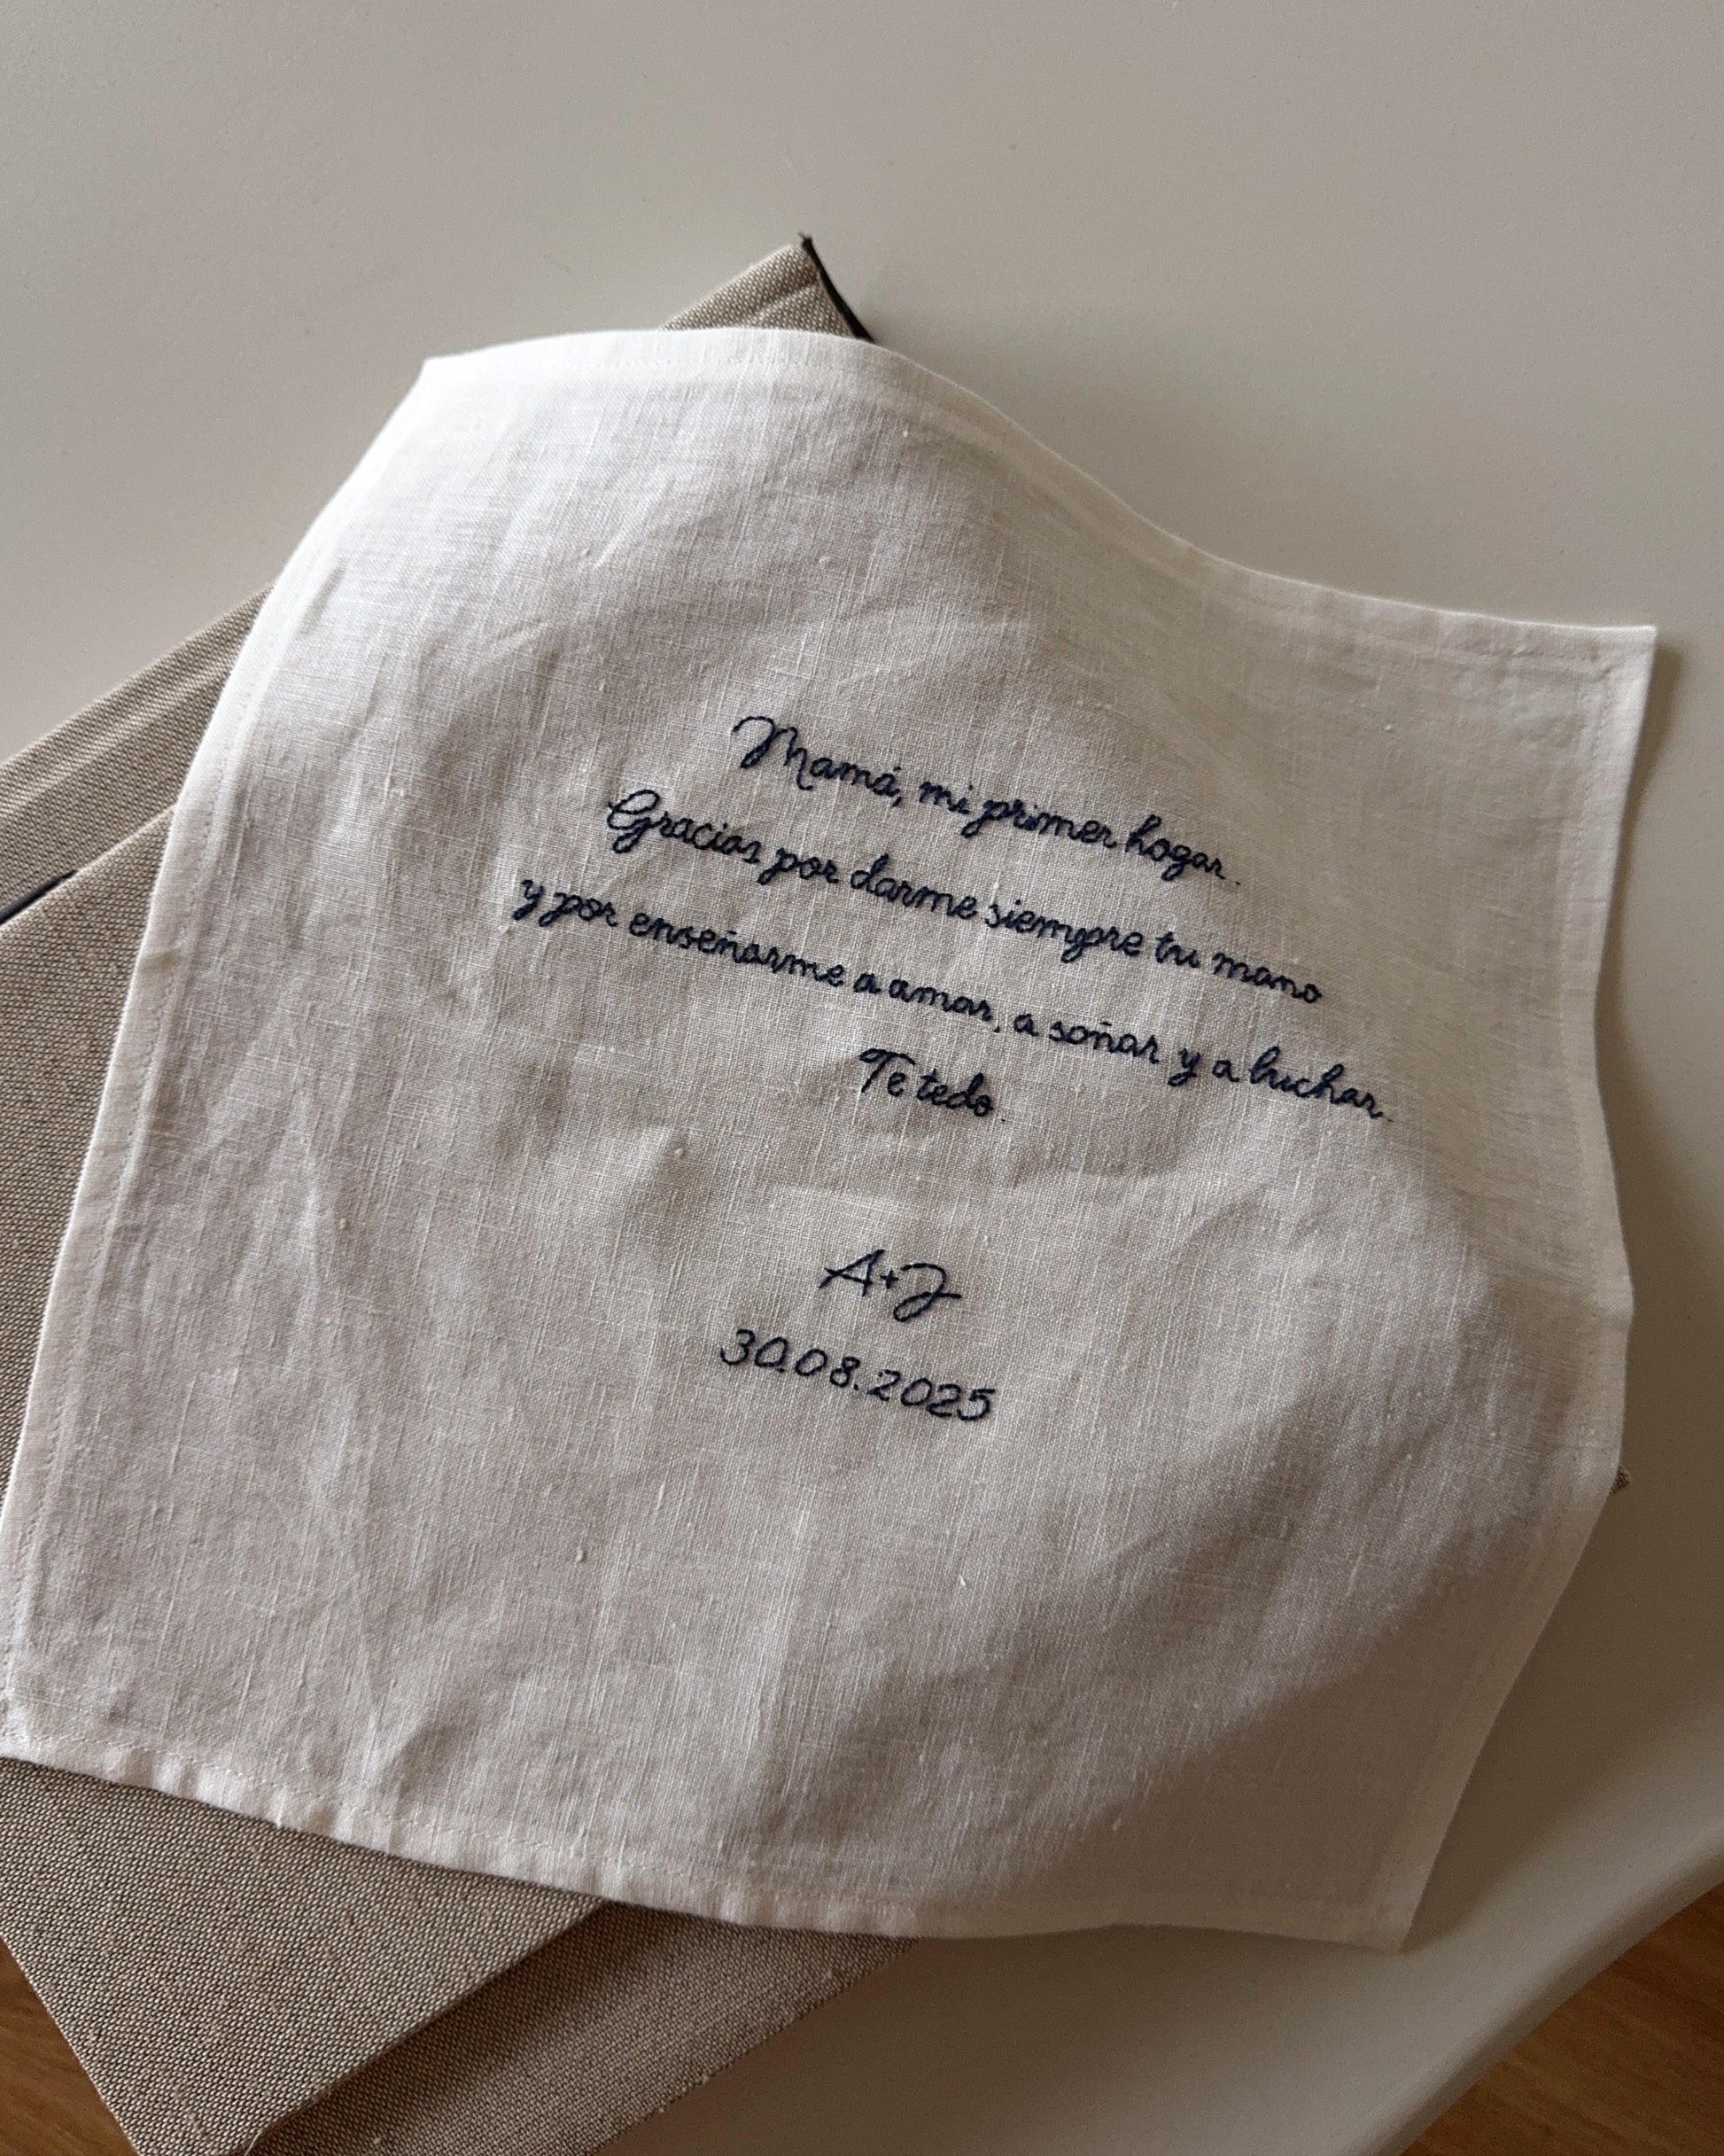 Mamá, mi primer hogar.
Gracias por darme siempre tu mano
y por enseñarme a amar, a soñar y a luchar.
Te tedo.
A+J
30.08.2025